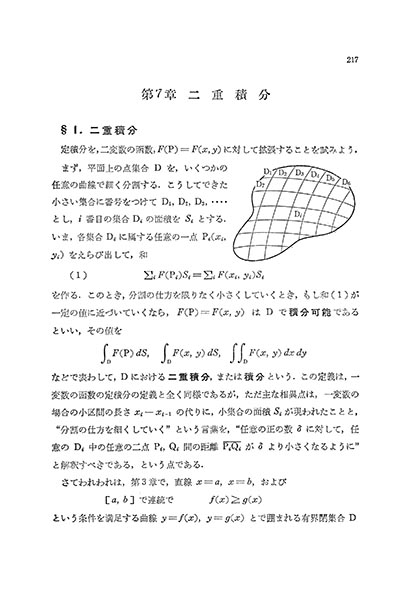 217
第7章 二 重 積 分
§ 1. 二重積分
定積分を,二変数の函数, F(P)=F(x, y) に対して拡張することを試みよう.
まず, 平面上の点集合 D を, いくつかの
任意の曲線で細く分割する. こうしてできた
小さい集合に番号をつけて D₁, D₂, D₃, ‥‥
とし, i 番目の集合 Dᵢ の面積を Sᵢ とする.
いま, 各集合 Dᵢ に属する任意の一点 Pᵢ(xᵢ,
yᵢ) をえらび出して, 和
D₁ D₂ D₃ D₄ D₅ D₆
D₇
Dᵢ
(1) ∑ᵢ F(Pᵢ)Sᵢ=∑ᵢ F(xᵢ, yᵢ)Sᵢ
を作る. このとき, 分割の仕方を限りなく小さくしていくとき, もし和(1)が
一定の値に近づいていくなら, F(P)=F(x, y) は D で積分可能である
といい, その値を
∫_D F(P) dS, ∫_D F(x, y) dS, ∬_D F(x, y) dx dy
などで表わして, D における二重積分, または積分という. この定義は, 一
変数の函数の定積分の定義と全く同様であるが, ただ主な相異点は, 一変数の
場合の小区間の長さ xᵢ−xᵢ₋₁ の代りに, 小集合の面積 Sᵢ が現われたことと,
“分割の仕方を細くしていく” という言葉を, “任意の正の数 δ に対して, 任
意の Dᵢ 中の任意の二点 Pᵢ, Qᵢ 間の距離 P̅ᵢ̅Q̅ᵢ̅ が δ より小さくなるように”
と解釈すべきである, という点である.
さてわれわれは, 第3章で, 直線 x=a, x=b, および
[a, b] で連続で f(x)≧g(x)
という条件を満足する曲線 y=f(x), y=g(x) とで囲まれる有界閉集合 D